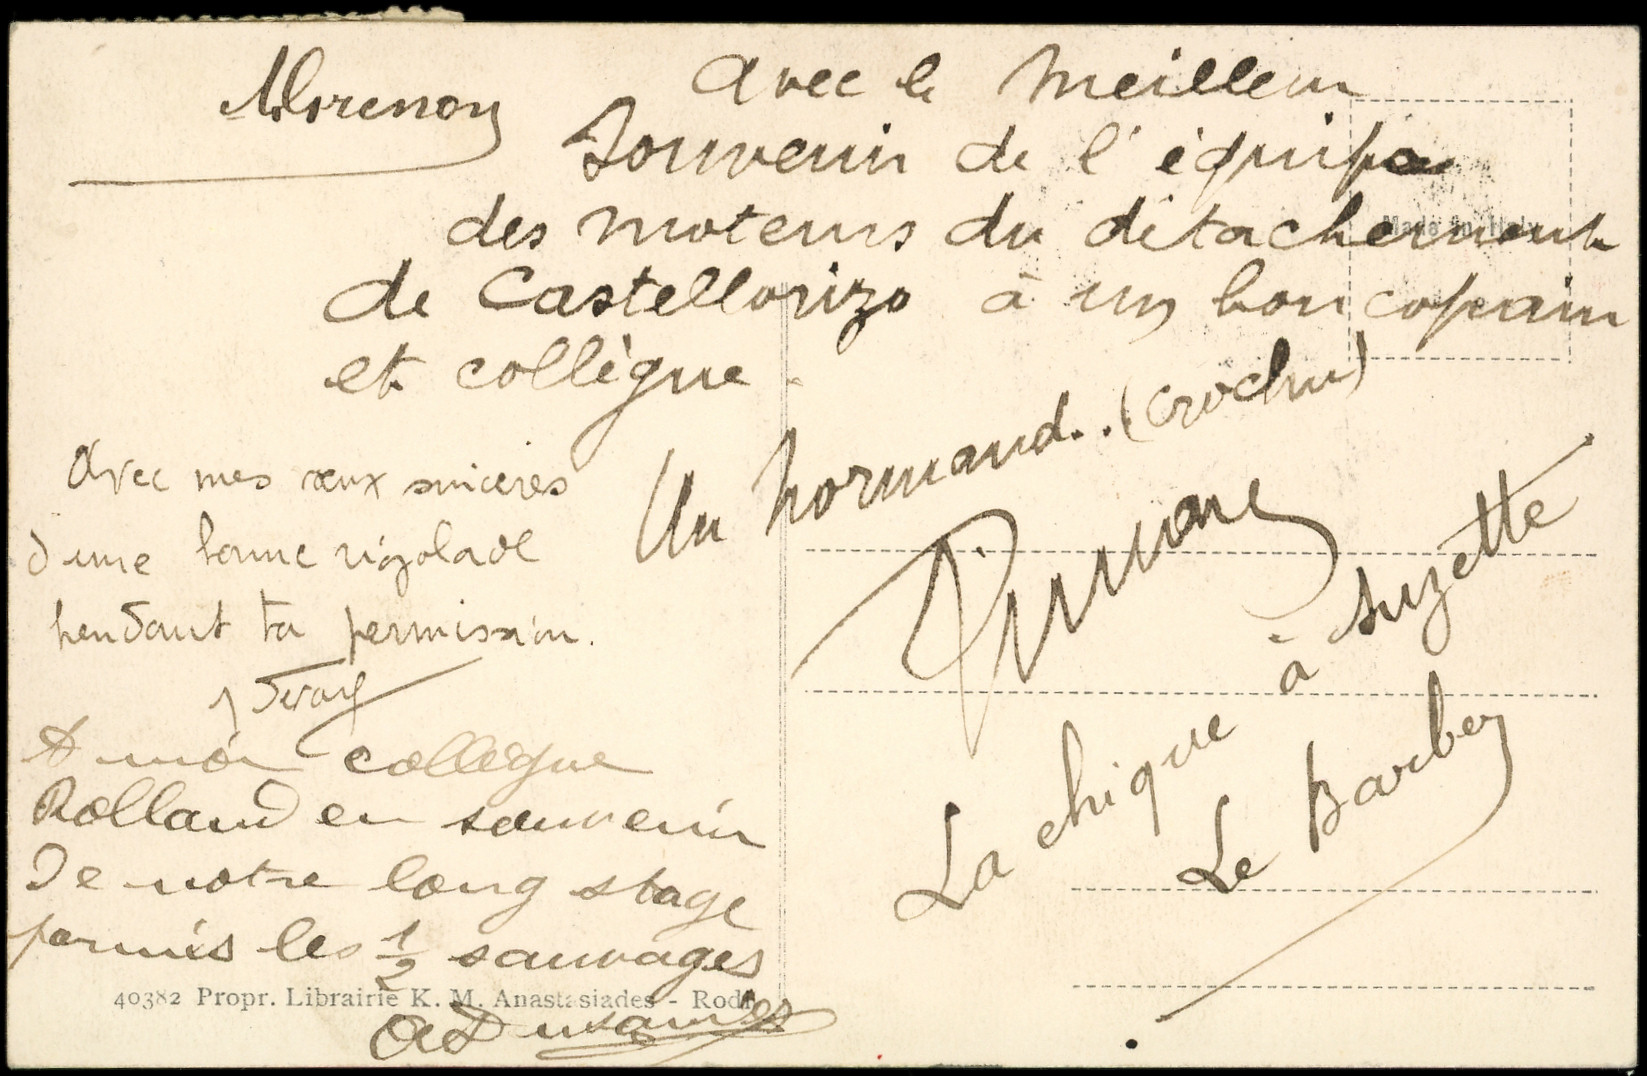 Avec le Meilleur
Souvenir de l'équipe
des moteurs du détachement
de Castellorizo à un bon copain
et collègue.
Made in Italy
Un normand..(crochu)
Avec mes vœux sincères
d'une bonne rigolade
pendant ta permission.
A mon collegue
Rolland en souvenir
De notre long stage
parmis les 1/2 sauvages
La chique à Suzette
Le Barbey
40382 Propr. Librairie K. M. Anastasiades - Rodi